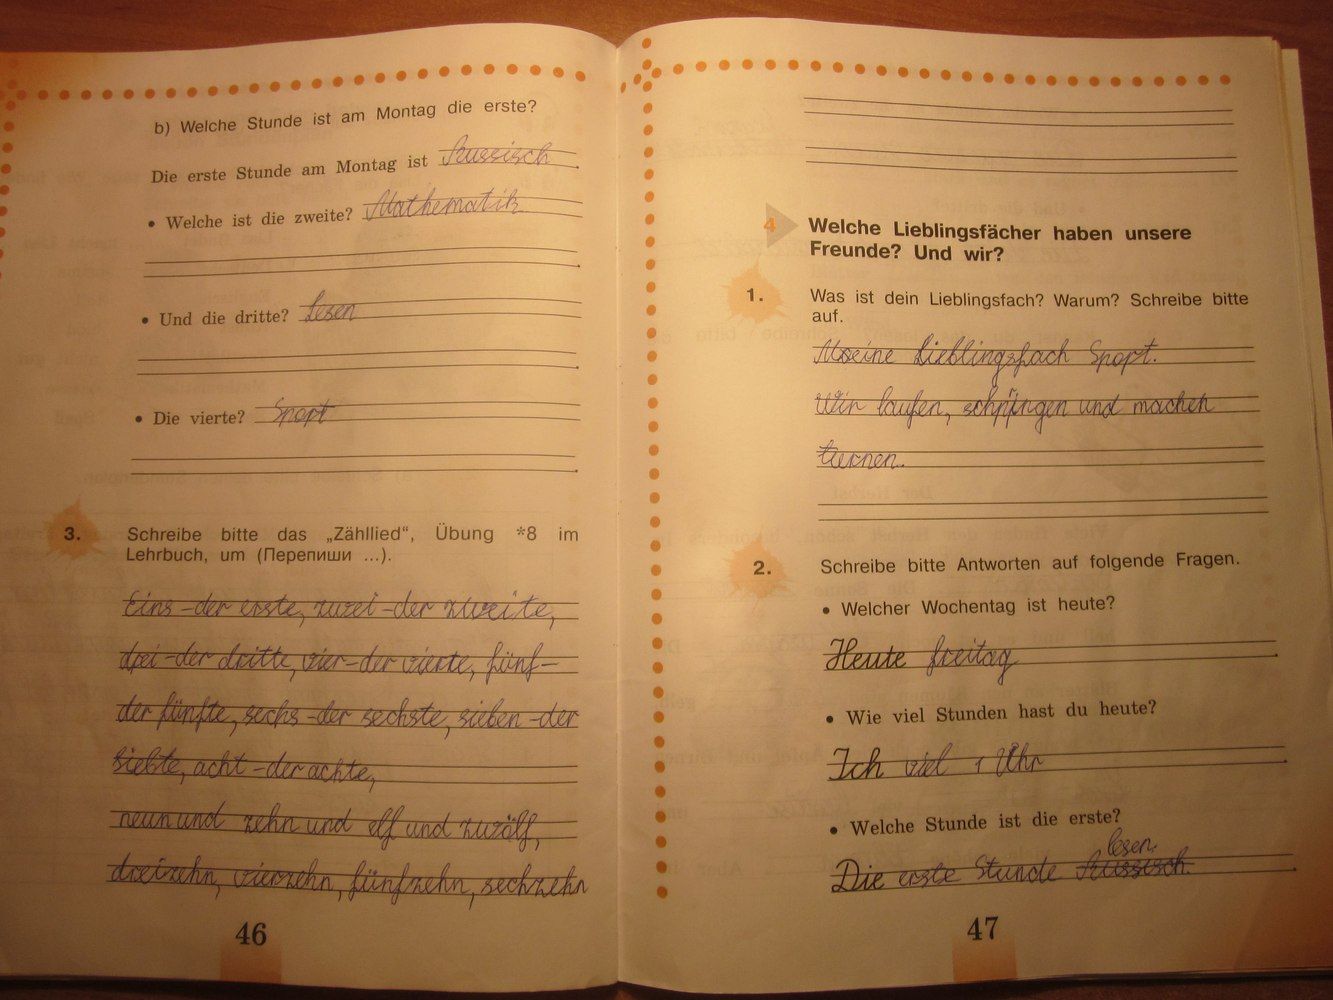 b) Welche Stunde ist am Montag die erste?
Die erste Stunde am Montag ist Russisch.
• Welche ist die zweite? Mathematik
.
• Und die dritte? Lesen
.
• Die vierte? Sport
.
3. Schreibe bitte das „Zähllied“, Übung *8 im
Lehrbuch, um (Перепиши ...).
Eins – der erste, zwei – der zweite,
drei – der dritte, vier – der vierte, fünf –
der fünfte, sechs – der sechste, sieben – der
siebte, acht – der achte,
neun und zehn und elf und zwölf,
dreizehn, vierzehn, fünfzehn, sechzehn
46
4 Welche Lieblingsfächer haben unsere
Freunde? Und wir?
1. Was ist dein Lieblingsfach? Warum? Schreibe bitte
auf.
Meine Lieblingsfach Sport.
Wir laufen, und machen
turnen.
2. Schreibe bitte Antworten auf folgende Fragen.
• Welcher Wochentag ist heute?
Heute freitag.
• Wie viel Stunden hast du heute?
Ich viel 1 Uhr.
• Welche Stunde ist die erste?
lesen.
Die erste Stunde Russisch.
47